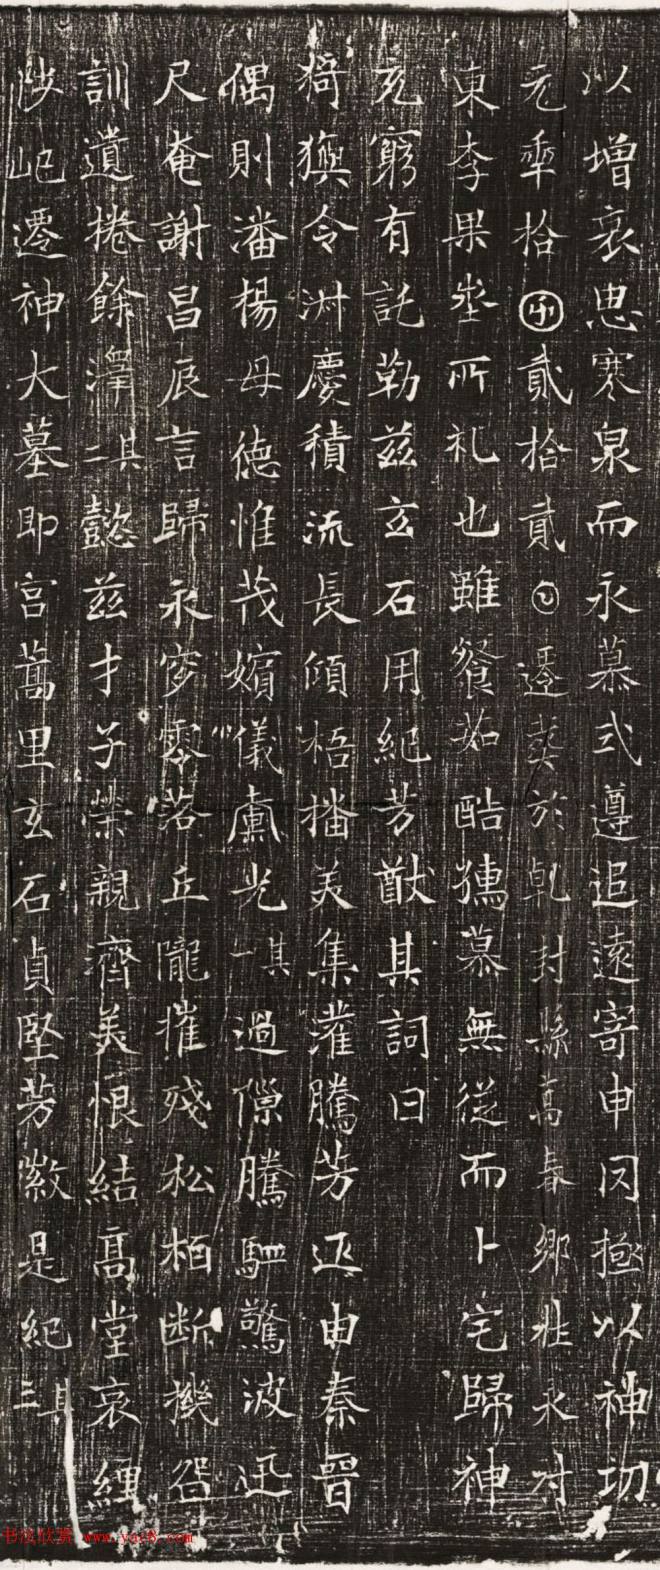 以增哀思寒泉而永慕式遵追遠寄申罔極以神功
元𠡦拾囝貳拾貳𡆠遷葬於乾封縣高春鄉壯永村
東李果所礼也雖餐茹酷慕無從而卜宅歸神
克窮有託勒兹玄石用紀芳猷其詞曰
猗歟令淑慶積流長傾梧播美集灌騰芳迺由秦晉
偶則潘楊母德惟茂嬪儀光其一過隙騰駟驚波迅
尺奄謝昌辰言歸永穸零落丘隴摧殘松栢断機留
訓遺捲餘澤其二懿兹才子榮親濟美恨結髙堂哀纏
陟屺遷神大墓即宫蒿里玄石貞堅芳徽是紀其三
书法欣赏 www.yac8.com